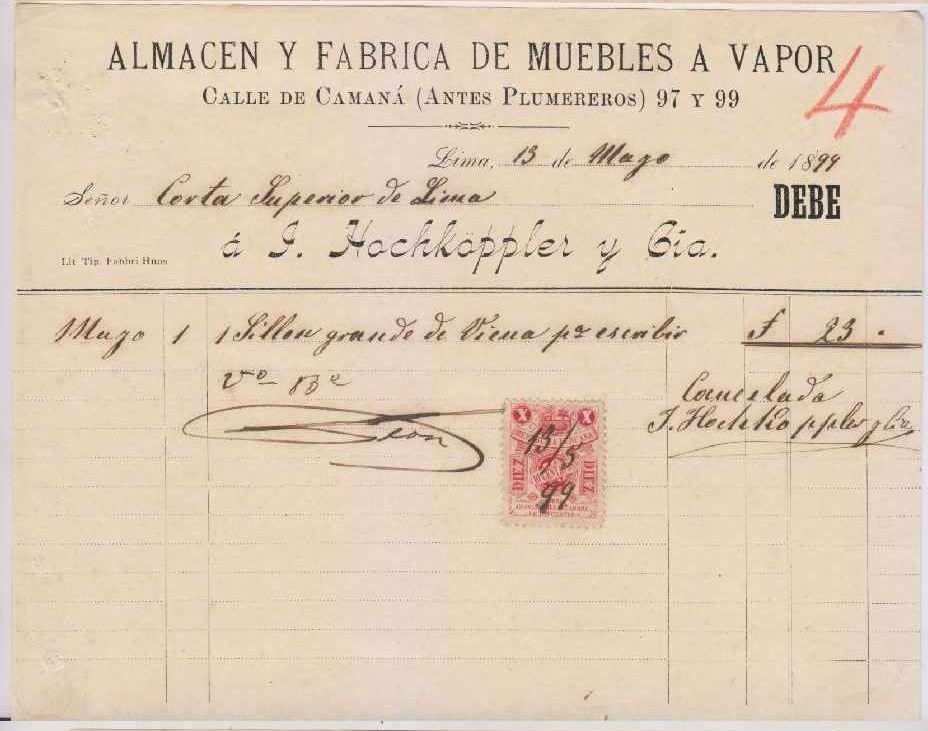 ALMACEN Y FABRICA DE MUEBLES A VAPOR
4
CALLE DE CAMANÁ (ANTES PLUMEREROS) 97 Y 99
Lima, 13 de Mayo de 1899
Señor Corta Superior de Lima DEBE
á J. Hochköppler y Cia.
Lit. Tip. Fabbri Hnos
Mayo 1 1 Sillon grande de Viena pa escribir £ 23.
Vo Bo
Cancelada
J. Hochköppler y Cia
León
X X
13/5
DIEZ DIEZ
99